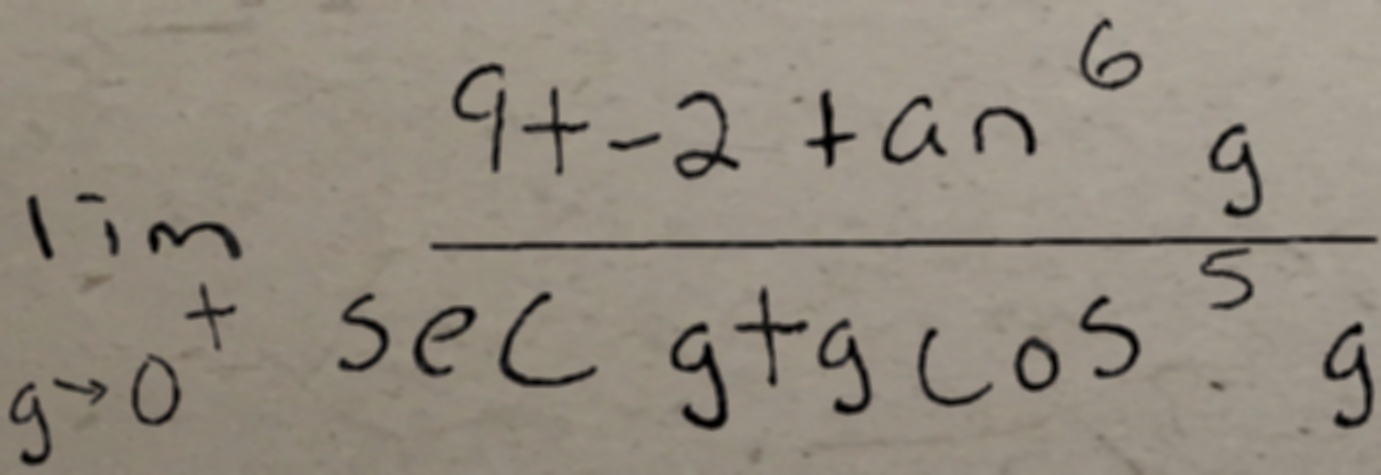 lim g→0⁺ (9+-2 tan⁶ g)/(sec g+g cos⁵ g)